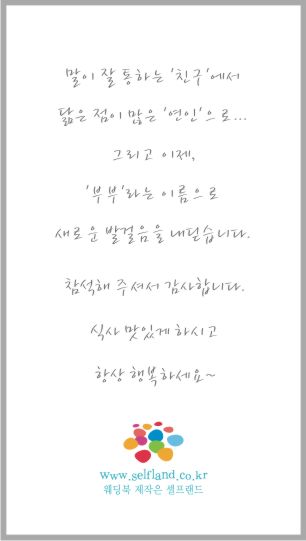 말이 잘 통하는 '친구'에서
닮은 점이 많은 '연인'으로...
그리고 이제,
'부부'라는 이름으로
새로운 발걸음을 내딛습니다.
참석해 주셔서 감사합니다.
식사 맛있게 하시고
항상 행복하세요~
www.selfland.co.kr
웨딩북 제작은 셀프랜드